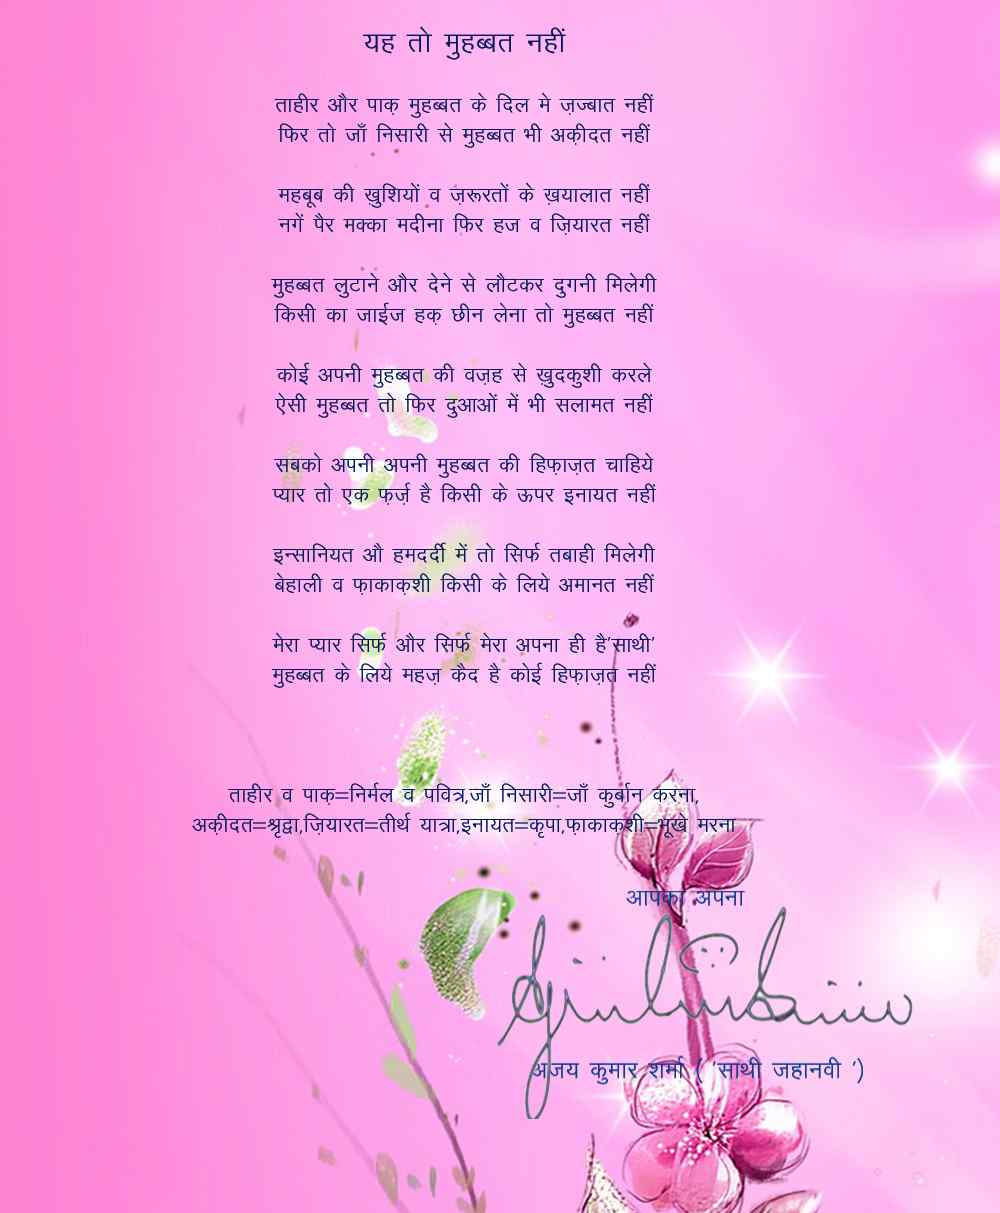 यह तो मुहब्बत नहीं
ताहीर और पाक़ मुहब्बत के दिल मे ज़ज्बात नहीं
फिर तो जाँ निसारी से मुहब्बत भी अक़ीदत नहीं
महबूब की ख़ुशियों व ज़रूरतों के ख़यालात नहीं
नगें पैर मक्का मदीना फिर हज व ज़ियारत नहीं
मुहब्बत लुटाने और देने से लौटकर दुगनी मिलेगी
किसी का जाईज हक़ छीन लेना तो मुहब्बत नहीं
कोई अपनी मुहब्बत की वज़ह से ख़ुदकुशी करले
ऐसी मुहब्बत तो फिर दुआओं में भी सलामत नहीं
सबको अपनी अपनी मुहब्बत की हिफ़ाज़त चाहिये
प्यार तो एक फ़र्ज़ है किसी के ऊपर इनायत नहीं
इन्सानियत औ हमदर्दी में तो सिर्फ तबाही मिलेगी
बेहाली व फ़ाकाक़शी किसी के लिये अमानत नहीं
मेरा प्यार सिर्फ और सिर्फ मेरा अपना ही है'साथी'
मुहब्बत के लिये महज़ कैद है कोई हिफ़ाज़त नहीं
ताहीर व पाक़=निर्मल व पवित्र,जाँ निसारी=जाँ कुर्बान करना,
अक़ीदत=श्रृद्वा,ज़ियारत=तीर्थ यात्रा,इनायत=कृपा,फ़ाकाक़शी=भूखे मरना
आपका अपना
अजय कुमार शर्मा ( 'साथी जहानवी ')